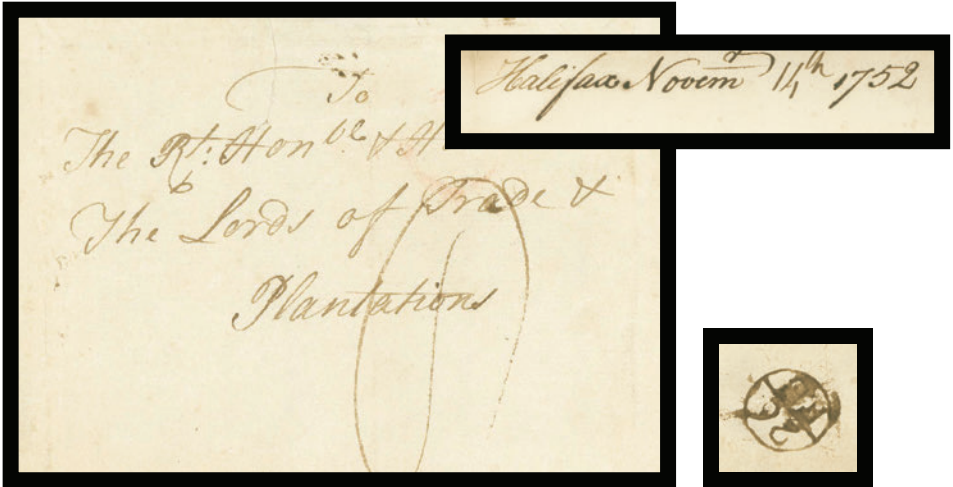 To
The Rt. Honble & H
The Lords of Trade &
Plantations
Halifax Novemr 14th 1752